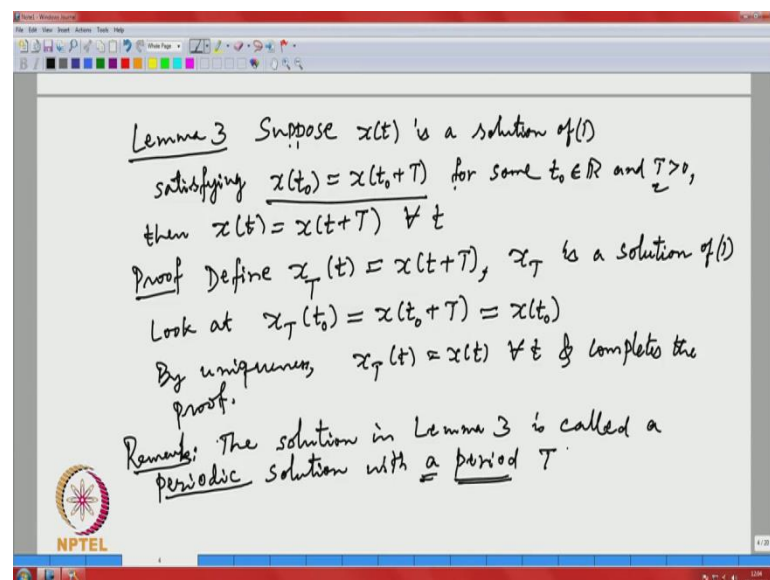 Note1 - Windows Journal
File Edit View Insert Actions Tools Help
Lemma 3 Suppose x(t) is a solution of (1)
satisfying x(t₀) = x(t₀+T) for some t₀ ∈ ℝ and T>0,
then x(t) = x(t+T) ∀ t
Proof Define x_T(t) = x(t+T), x_T is a solution of (1)
Look at x_T(t₀) = x(t₀+T) = x(t₀)
By uniqueness, x_T(t) = x(t) ∀ t & completes the
proof.
Remark: The solution in Lemma 3 is called a
periodic solution with a period T
NPTEL
4